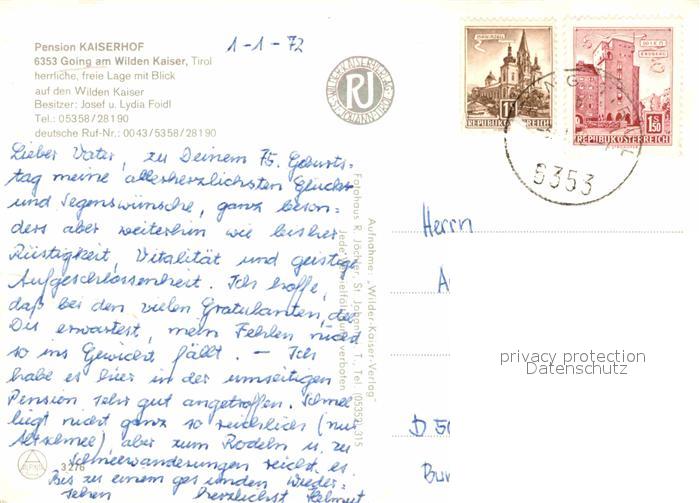 Pension KAISERHOF
6353 Going am Wilden Kaiser, Tirol
herrliche, freie Lage mit Blick
auf den Wilden Kaiser
Besitzer: Josef u. Lydia Foidl
Tel.: 05358/28190
deutsche Ruf-Nr.: 0043/5358/28190
1-1-72
WILDER-KAISER-VERLAG
RJ
ST. JOHANN-TIROL
MARIAZELL
1S
REPUBLIK ÖSTERREICH
WIEN
ERDBERG
1.50
S
REPUBLIK ÖSTERREICH
6353
Lieber Vater, zu Deinem 75. Geburts=
tag meine allerherzlichsten Glück=
und Segenswünsche, ganz beson=
ders aber weiterhin wie bisher
Rüstigkeit, Vitalität und geistige
Aufgeschlossenheit. Ich hoffe,
daß bei den vielen Gratulanten, die
Du erwartest, mein Fehlen nicht
so ins Gewicht fällt. – Ich
habe es hier in der umseitigen
Pension sehr gut angetroffen. Schnee
liegt nicht ganz so reichlich (nur
Altschnee) aber zum Rodeln u. zu
Schneewanderungen reicht es.
Bis zu einem gesunden Wieder=
sehen herzlichst Helmut
Aufnahme: „Wilder-Kaiser-Verlag"
Fotohaus R. Jöchler, St. Johann i. T., Tel. (05352) 315
Jede Vervielfältigung verboten
Herrn
D 50
privacy protection
Datenschutz
ALPINA
3276